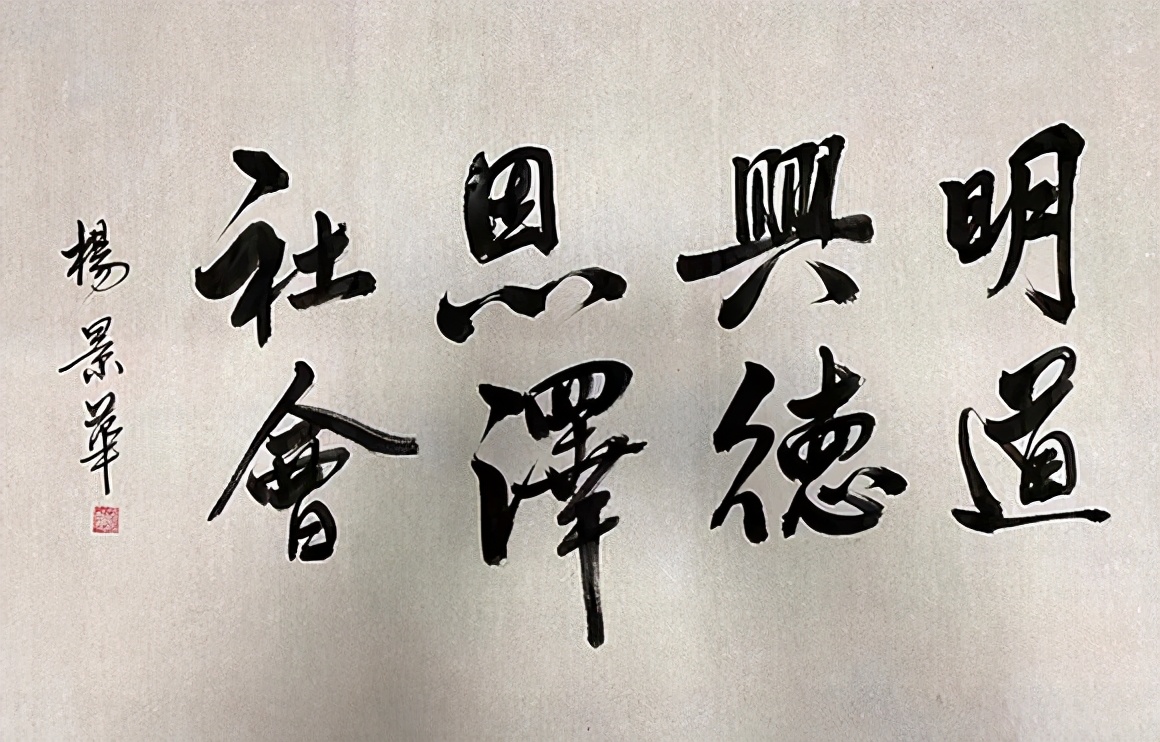 明道
興德
恩澤
社會
楊景華